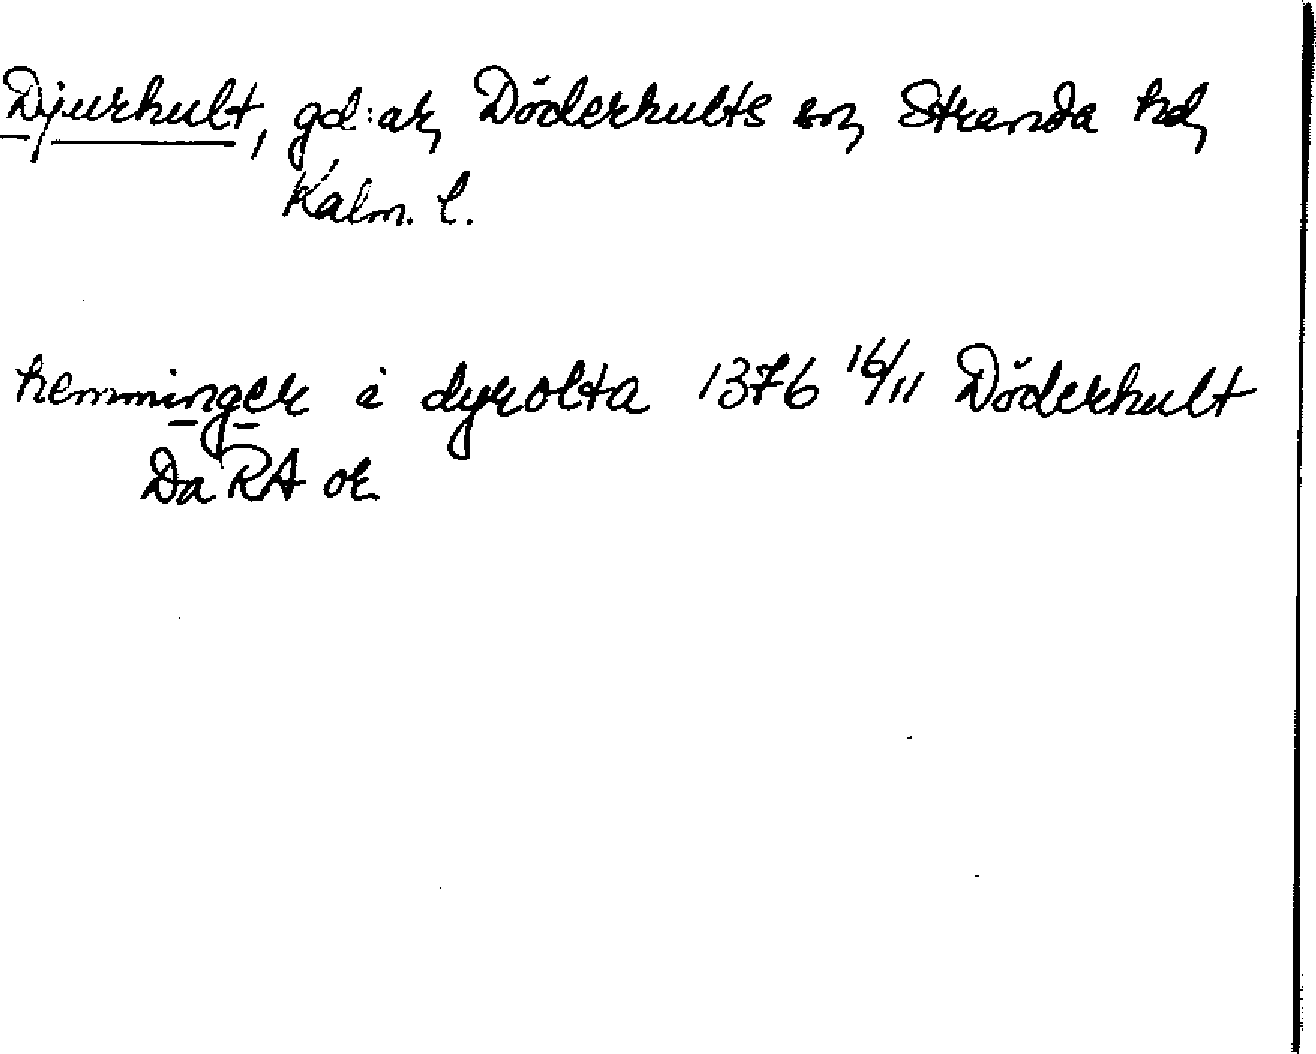 Djurhult, gd:ar, Döderhults sn, Stranda hd,
Kalm. l.
hemminger i dyrolta 1376 16/11 Döderhult
Da RA or